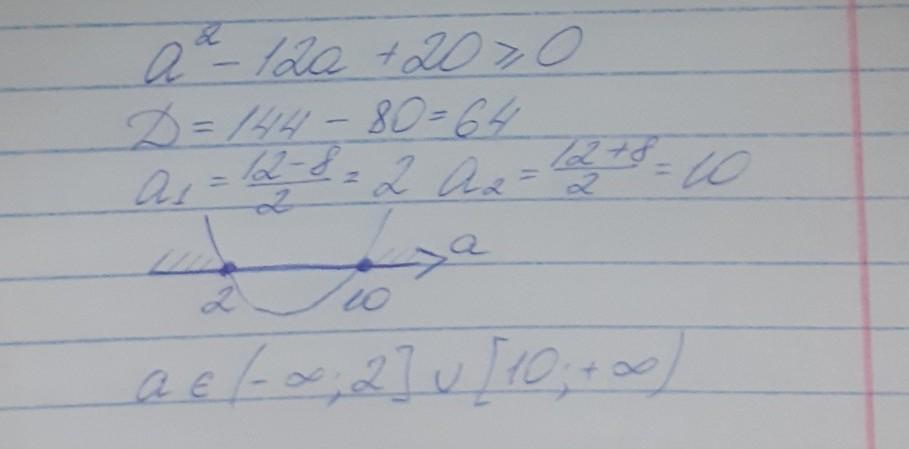 a² - 12a + 20 ⩾ 0
D = 144 - 80 = 64
a₁ = (12-8)/2 = 2 a₂ = (12+8)/2 = 10
a
2 10
a ∈ (-∞; 2] ∪ [10; +∞)